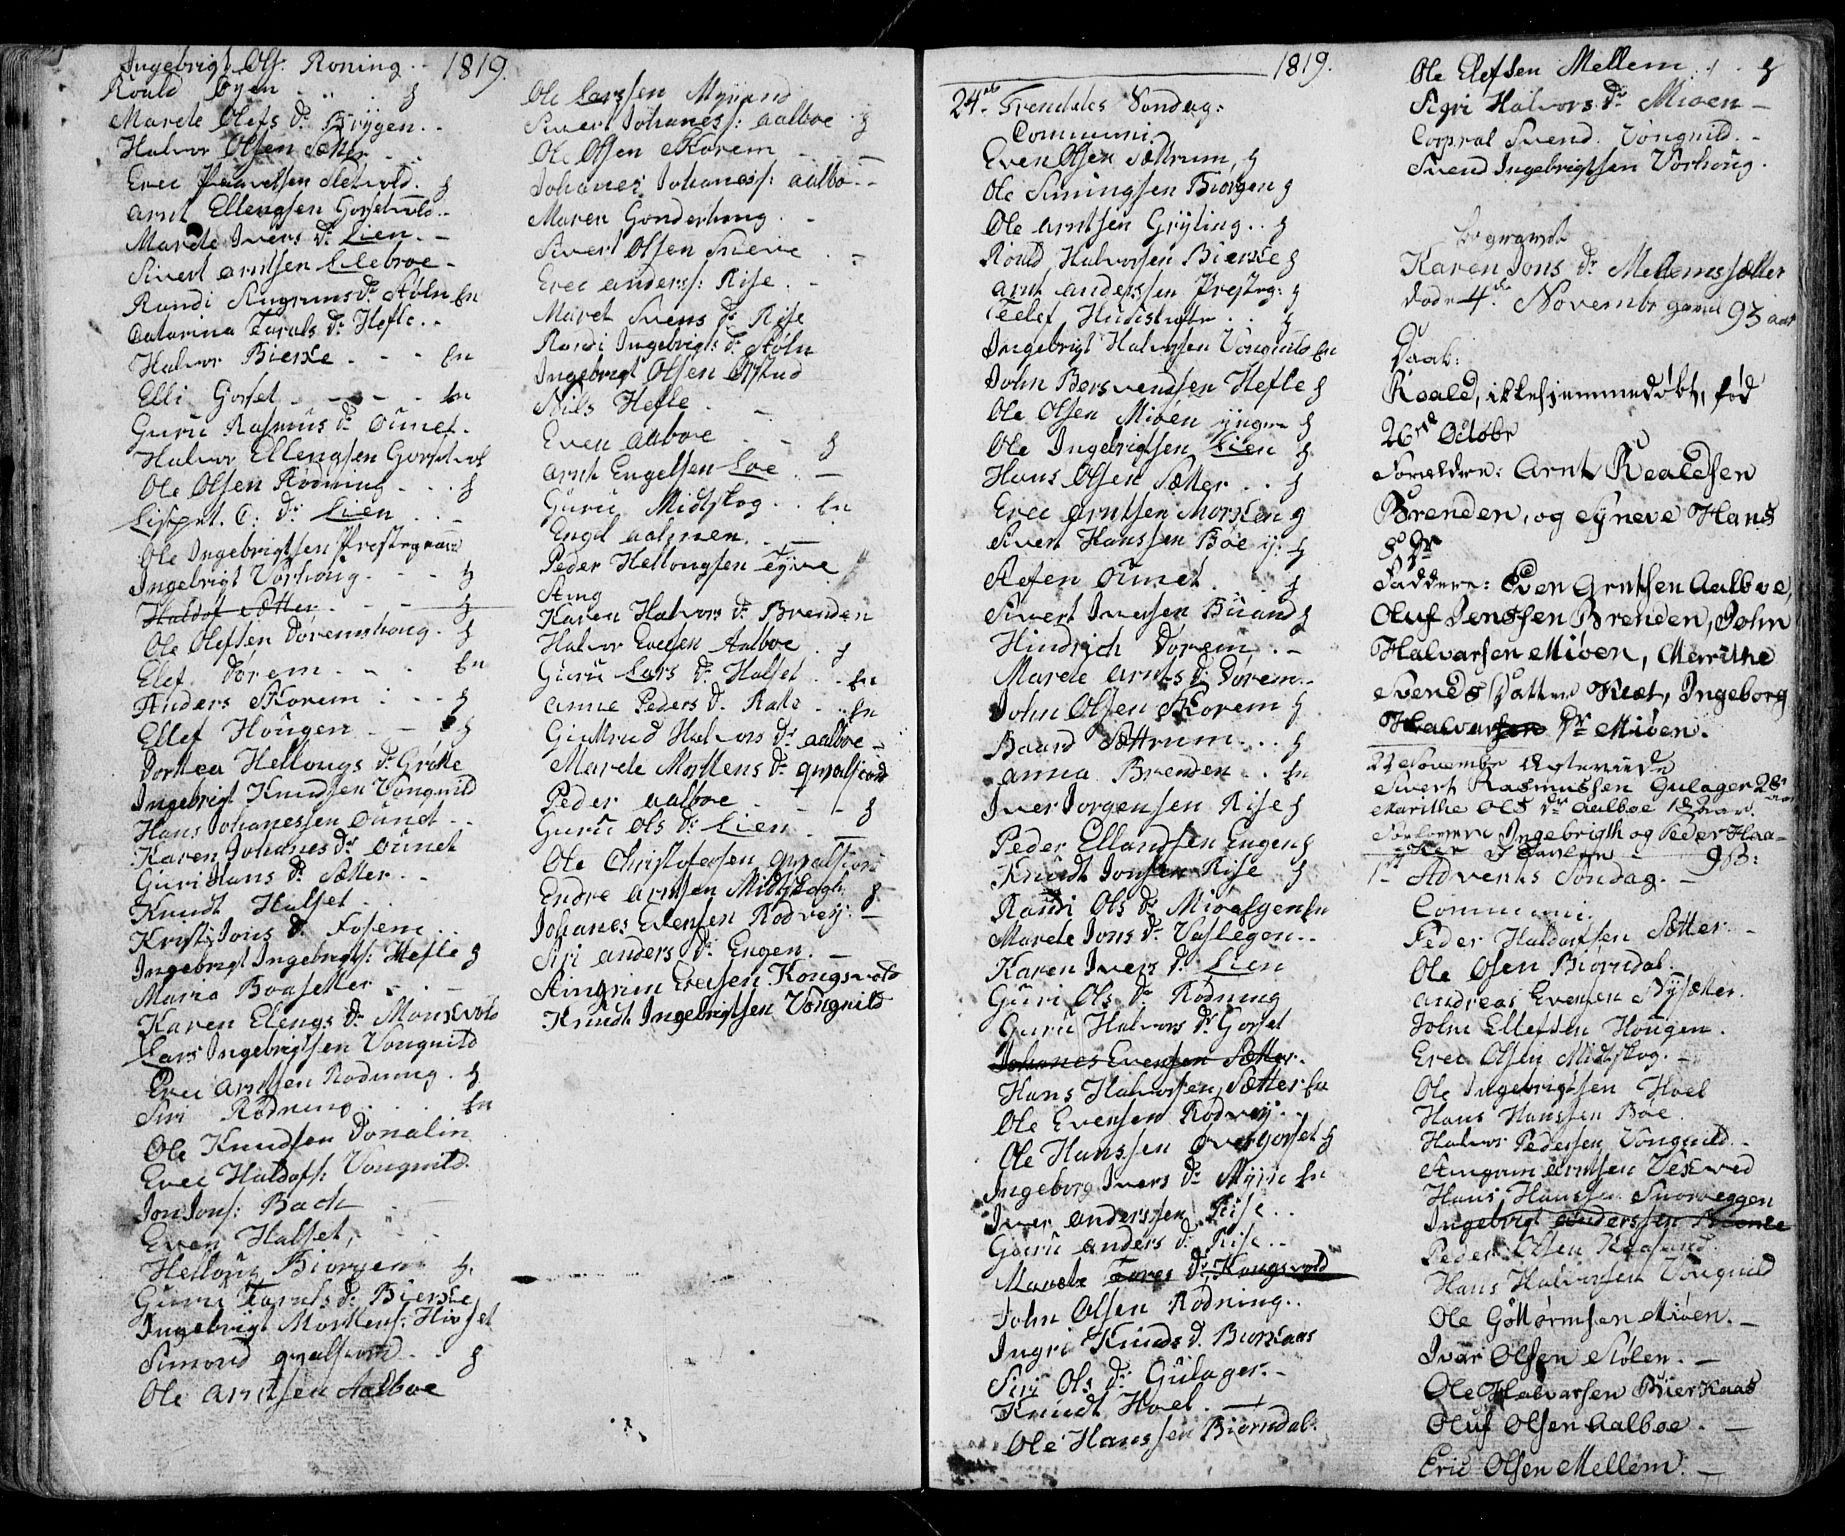 Ingebrigt Ols: Roning. - 1819.
Roald Øyen
Marele Olefs Dr. Brygen. .
Halvor Olsen Sætter
Erec Paavelsen Sletvold. g
Arnt Ellengsen Gorsetvold -
Marele Ivers Dr. Lien. -
Sivert Arntsen Lileboe -
Randi Dr. Støln En
Catarina Tarals Dr: Hefle. -
Halvor Bierke - - - En
Elli Gorset - - - - En
Guru Rasmus Dr. Ounet.
Halvor Ellengsen Gorsetvol
Ole Olsen Rødning - . . g
Lispet. O: Dr. Lien
Ole Ingebrigtsen Prestegaare
Ingebrigt Vorhoug. - - - g
Haldof Sætter - - - g
Ole Olefsen Doremshoug. g
Elef Dorem - - . En
Anders Skorem : - - g
Ellef Hougen - - g
Dortea Hellougs Dr. Gröte
Ingebrigt Knudsen Vongnild
Hans Johanessen Ounet - -
Karen Johanes Dr. Ounet
Guri Hans Dr. Sætter. -
Knudt Halset
Kristi Jons Dr. Fosem. .
Ingebrigt Ingebrigts: Hefle g
Maria Boasetter - . -
Karen Elengs Dr. Monsvold
Lars Ingebrigtsen Vongnild
Erec Arntsen Rodning. g
Siri Rødning . . . . En
Ole Knudsen Donalin
Erec Haldofs: Vongnild.
Jon Jons: Bach
Even Halset, -
Helloug Biorgen g.
Guru Tarals Dr. Bierke
Ingebrigt Mortens: Hivset
Simond qvalsvord - . g
Ole Arntsen Aalboe
Ole Larssen Myrend
Sivert Johaness: Aalboe . g
Ole Olsen Skorem - . -
Johanes Johaness: Aalbo - -
Maren Gonderhoug. -
Sivert Olsen Snieve . -
Erec Anders: Rise. -
Maret Svens Dr. Rise
Randi Ingebrigts Dr. Støln
Ingebrigt Olsen Orstad
Nils Hefle. -
Even Aalboe - - g
Arnt Engelsen Loe . -
Guru Midtskog . . En
Engel Aalmen. . -
Peder Hellougsen Tyve
Sting
Karen Halvors Dr. Brenden
Halvor Evensen Aalboe . g
Guru Lars Dr. Halset . . En
Anne Peders Dr. Rake . . En
Giertrud Halvors Dr. Aalboe -
Marele Mortens Dr. qvalsvord
Peder Aalboe - - - g
Guru Ols Dr. Lien. -
Ole Christofersen, qvalsvord
Endre Arntsen Midtskogh g.
Johanes Evensen Rodvey. -
Siri Anders Dr. Engen. -
Stingrim Evensen Kongsvold
Knudt Ingebrigtsen Vongnild
1819.
24de Trenitatis Søndag:
Communi.
Even Olsen Sættrum, g
Ole Simingsen Biorgen g
Ole Arntsen Gryting . . g
Roald Halvorsen Bierke g
Arnt Anderssen Presteg: g
Tellef . . g
Ingebrigt Halvorsen Vongnild En
John Bersvendsen Hefle g
Ole Olsen Miøen yngre g
Ole Ingebrigtsen Lien g.
Hans Olsen Sætter . . g
Erec Arntsen Morken g
Sivert Hanssen Böe y: g
Stefen Ounet . g
Sivert Iversen Buand g
Hindrich Dorem. . -
Marele Arnts Dr. Dorem. .
John Olsen Skorem g
Baard Sættrum . . . g
Anna Brenden - . En
Iver Jorgensen Rise g
Peder Ellandsen Engen g
Knudt Jonsen Rise g
Randi Ols Dr. Miøeigen En
Marele Jons Dr. Vaslegon. .
Karen Ivers Dr. Lien
Guri Ols Dr. Rødning
Guru Halvors Dr. Gorset
Johanes Evensen Sætter.
Hans Halvorsen Sætter En
Ole Evensen Rodvey. .
Ole Hanssen Overgorset g
Ingeborg Ivers Dr. Myre En
Iver Anderssen Rise . .
Guru Anders Dr. Rise. .
Marete Tores Dr. Kongsvold
John Olsen Rødning. .
Ingri Knuds D. Biorkaas
Siri Ols Dr. Gulager. -
Knudt Hoel. -
Ole Hanssen Biørndal.
Ole Elefsen Mellem . . g
Sigri Halvors Dr. Mioen -
Corpral Svend Vongnild. -
Svend Ingebrigtsen Vorhoug.
Begravede
Karen Jons Dr. Mellemssætter
døde 4de Novembr gamel 93 aar
Daab:
Roald, ikke hjemmedøbt, fød
26de Octobr
Forældre: Arnt Roaldsen
Brenden, og Hans
Dr
Faddere: Even Arntsen Aalboe,
Oluf Jonssen Brenden, John
Halvarsen Miöen, Merrithe
Svends Datter Klæt, Ingeborg
Halvarsen Dr Miöen.
22 November
Sivert Rasmussen Gulager 28 aar
Marithe Ols Dr Aalboe
Forlovere Ingebrigth og Peder Haa-
1ste Advents Søndag. -
Communi.
Peder Haldorsen Sætter. -
Ole Olsen Biørndal.
Andreas Evensen Bysætter.
John Ellefsen Hougen.
Erec Olsen Midtskog. -
Ole Ingebrigtsen Hoel
Hans Hanssen Böe.
Halvor Pedersen Vongnild. -
Stingrim Arntsen Vekved
Hans Hanssen Snoreeggen
Ingebrigt Anderssen Bierke
Peder Olsen
Hans Halvorsen Vongnild
Ole Gottormsen Miøen. -
Ivar Olsen Stölen. -
Ole Halvarsen Bierkaas
Oluf Olsen Aalboe. -
Eric Olsen Mellem. -